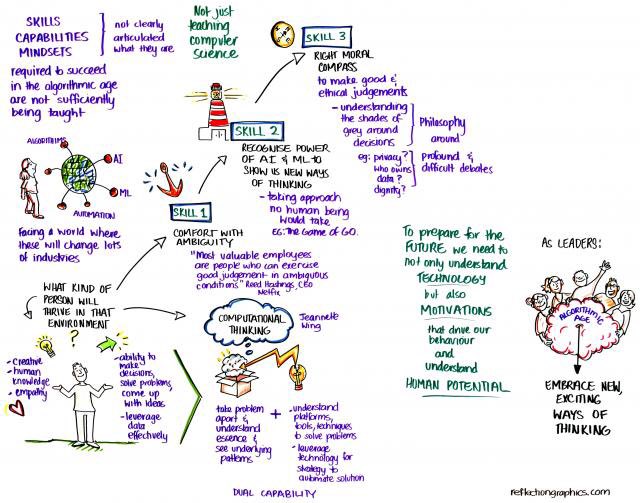 SKILLS
CAPABILITIES
MINDSETS
not clearly
articulated
what they are
required to succeed
in the algorithmic age
are not sufficiently
being taught
Not just
teaching
computer
science
SKILL 3
RIGHT MORAL
COMPASS
to make good &
ethical judgements
- understanding
the shades of
grey around
decisions
eg: privacy?
who owns
data?
dignity?
Philosophy
around
profound &
difficult debates
SKILL 2
RECOGNISE POWER
OF AI & ML to
SHOW US NEW WAYS
OF THINKING
- taking approach
no human being
would take
EG: The Game of GO.
ALGORITHMS
AI
ML
AUTOMATION
Facing a world where
these will change lots
of industries
SKILL 1
COMFORT WITH
AMBIGUITY
"Most valuable employees
are people who can exercise
good judgement in ambiguous
conditions" Reed Hastings, CEO
Netflix
WHAT KIND OF
PERSON WILL
THRIVE IN THAT
ENVIRONMENT
?
- creative
- human
knowledge
- empathy
- ability to
make
decisions,
solve problems,
come up
with ideas
- leverage
data
effectively
COMPUTATIONAL
THINKING
Jeannette
Wing
take problem
apart &
understand
essence &
see underlying
patterns
+
- understand
platforms,
tools, techniques
to solve problems
- leverage
technology for
strategy to
automate solution
DUAL CAPABILITY
To prepare for the
FUTURE we need to
not only understand
TECHNOLOGY
but also
MOTIVATIONS
that drive our
behaviour
and
understand
HUMAN POTENTIAL
AS LEADERS:
ALGORITHMIC
AGE
EMBRACE NEW,
EXCITING
WAYS OF
THINKING
reflectiongraphics.com